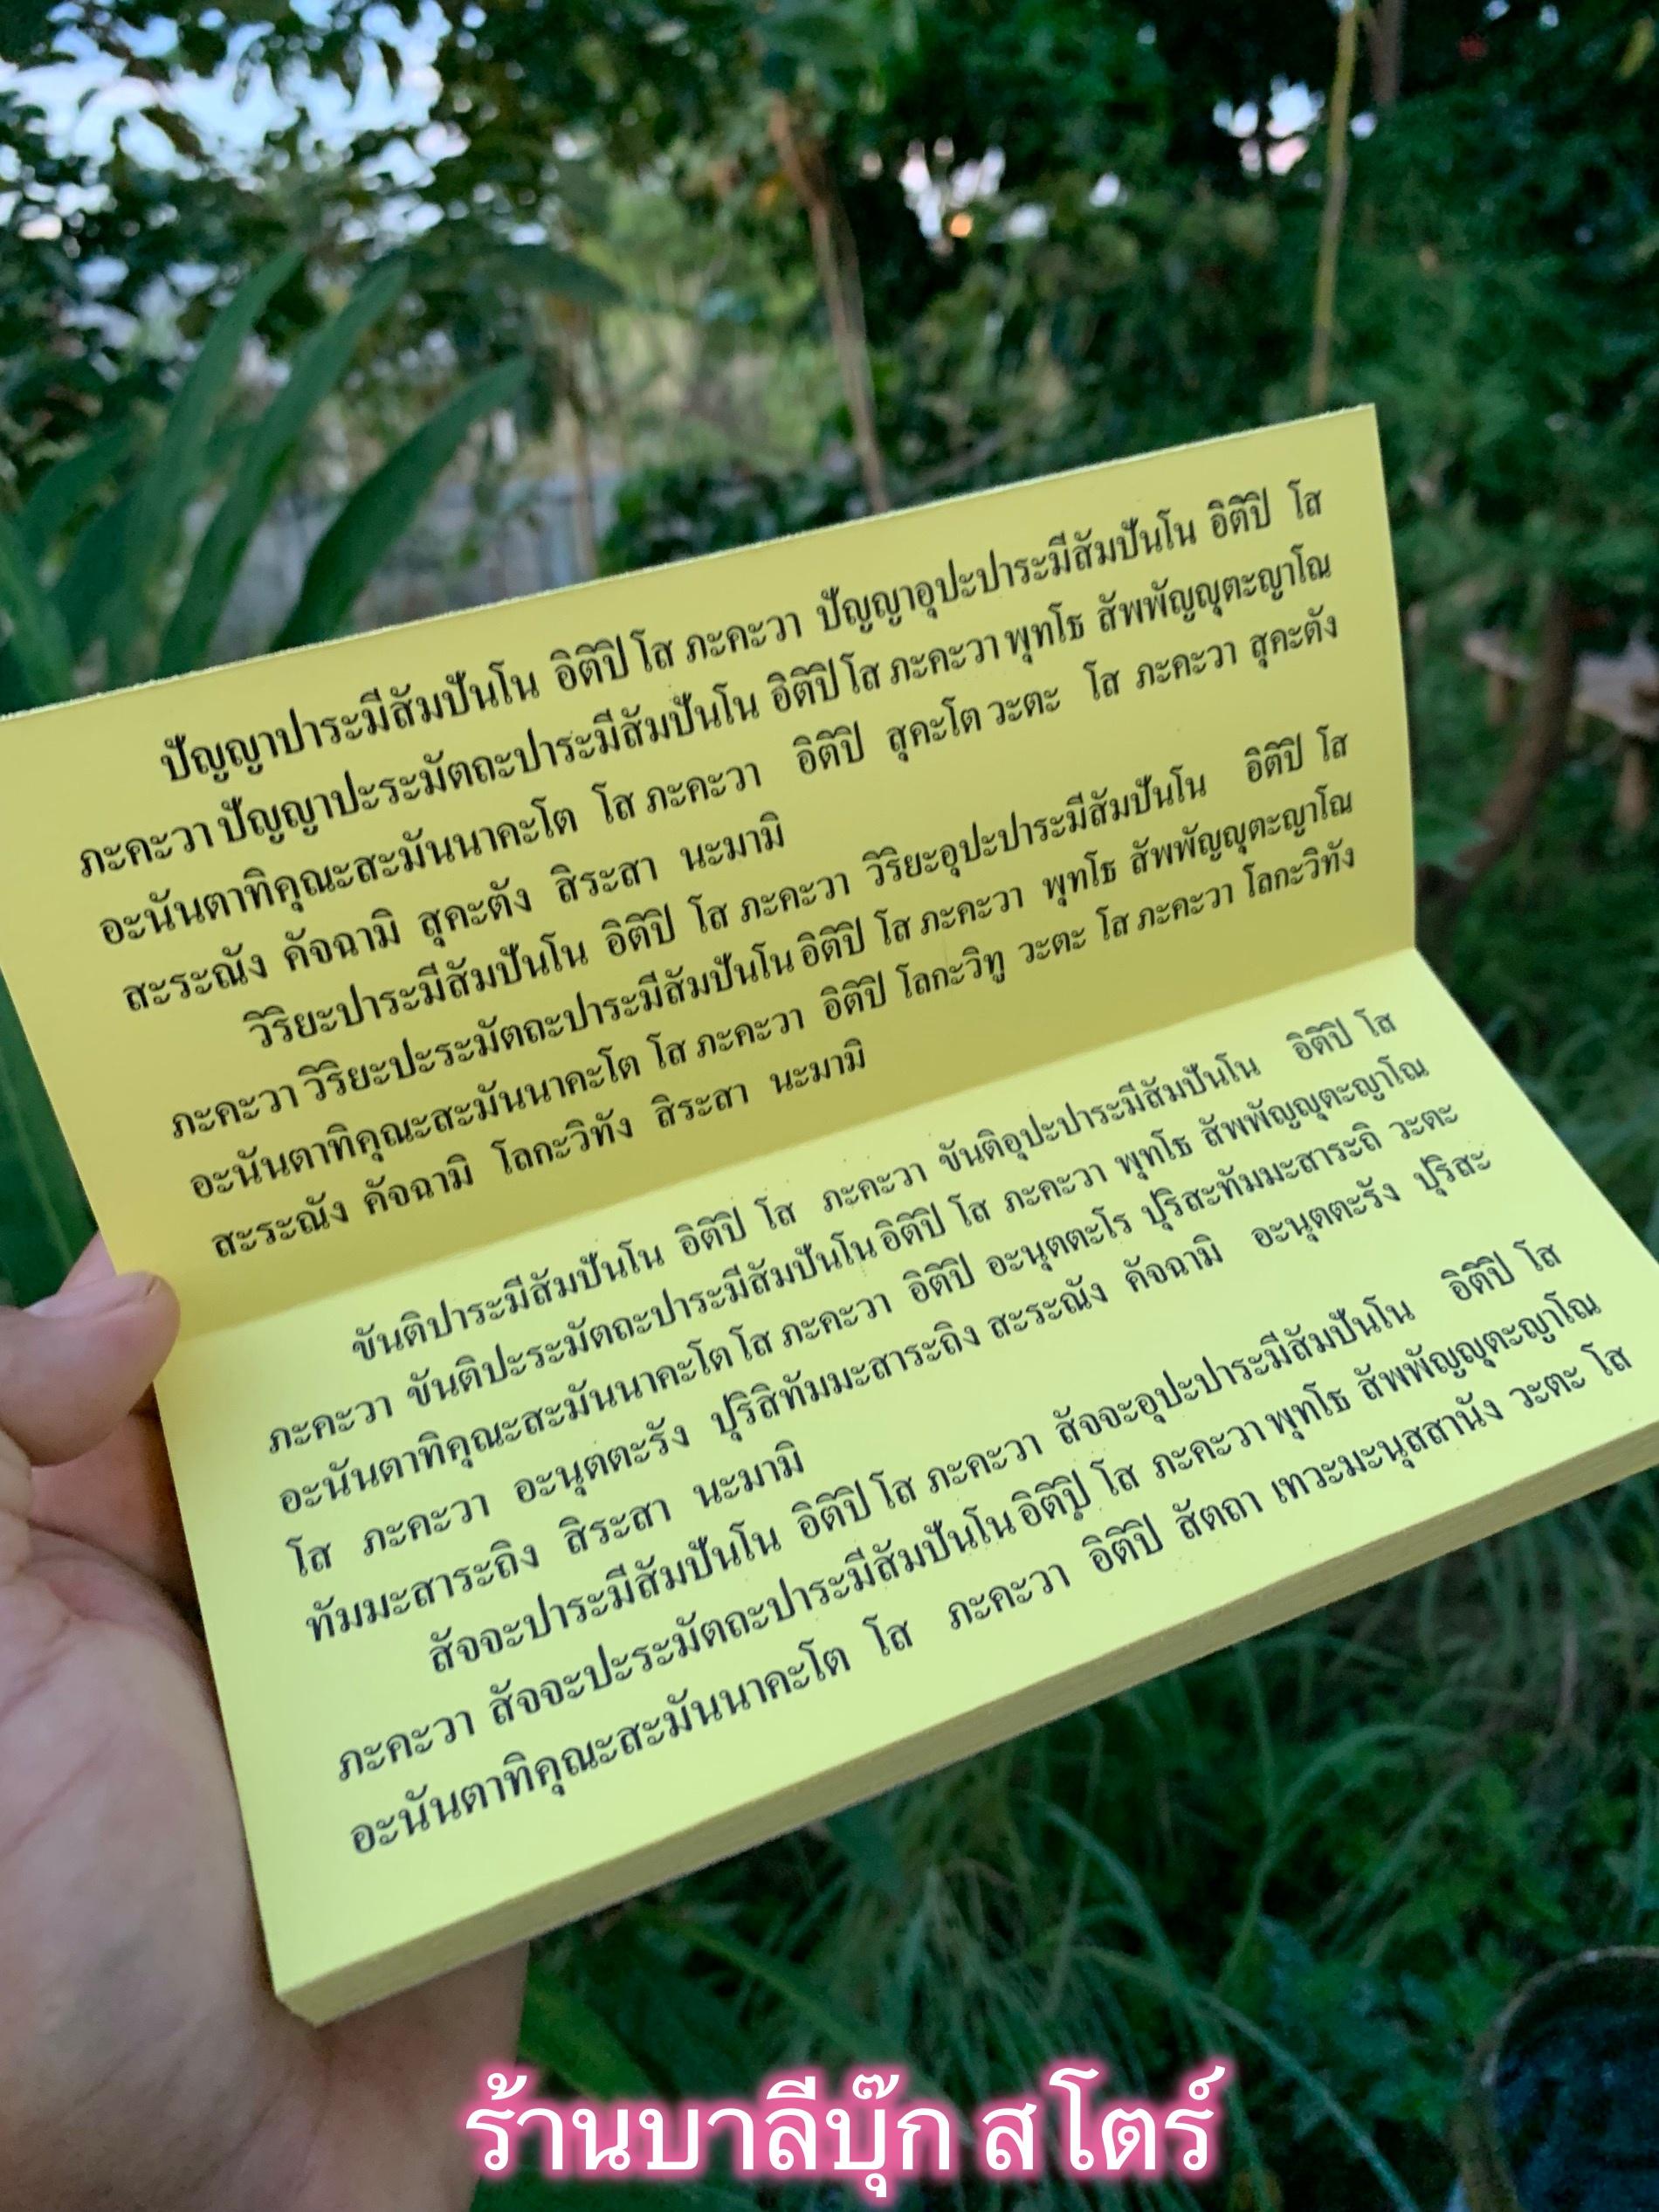 ปัญญาปาระมีสัมปันโน อิติปิ โส ภะคะวา ปัญญาอุปะปาระมีสัมปันโน อิติปิ โส
ภะคะวา ปัญญาปะระมัตถะปาระมีสัมปันโน อิติปิ โส ภะคะวา พุทโธ สัพพัญญุตะญาโณ
อะนันตาทิคุณะสะมันนาคะโต โส ภะคะวา อิติปิ สุคะโต วะตะ โส ภะคะวา สุคะตัง
สะระณัง คัจฉามิ สุคะตัง สิระสา นะมามิ
วิริยะปาระมีสัมปันโน อิติปิ โส ภะคะวา วิริยะอุปะปาระมีสัมปันโน อิติปิ โส
ภะคะวา วิริยะปะระมัตถะปาระมีสัมปันโน อิติปิ โส ภะคะวา พุทโธ สัพพัญญุตะญาโณ
อะนันตาทิคุณะสะมันนาคะโต โส ภะคะวา อิติปิ โลกะวิทู วะตะ โส ภะคะวา โลกะวิทัง
สะระณัง คัจฉามิ โลกะวิทัง สิระสา นะมามิ
ขันติปาระมีสัมปันโน อิติปิ โส ภะคะวา ขันติอุปะปาระมีสัมปันโน อิติปิ โส
ภะคะวา ขันติปะระมัตถะปาระมีสัมปันโน อิติปิ โส ภะคะวา พุทโธ สัพพัญญุตะญาโณ
อะนันตาทิคุณะสะมันนาคะโต โส ภะคะวา อิติปิ อะนุตตะโร ปุริสะทัมมะสาระถิ วะตะ
โส ภะคะวา อะนุตตะรัง ปุริสิทัมมะสาระถิง สะระณัง คัจฉามิ อะนุตตะรัง ปุริสะ
ทัมมะสาระถิง สิระสา นะมามิ
สัจจะปาระมีสัมปันโน อิติปิ โส ภะคะวา สัจจะอุปะปาระมีสัมปันโน อิติปิ โส
ภะคะวา สัจจะปะระมัตถะปาระมีสัมปันโน อิติปิ โส ภะคะวา พุทโธ สัพพัญญุตะญาโณ
อะนันตาทิคุณะสะมันนาคะโต โส ภะคะวา อิติปิ สัตถา เทวะมะนุสสานัง วะตะ โส
ร้านบาลีบุ๊ก สโตร์